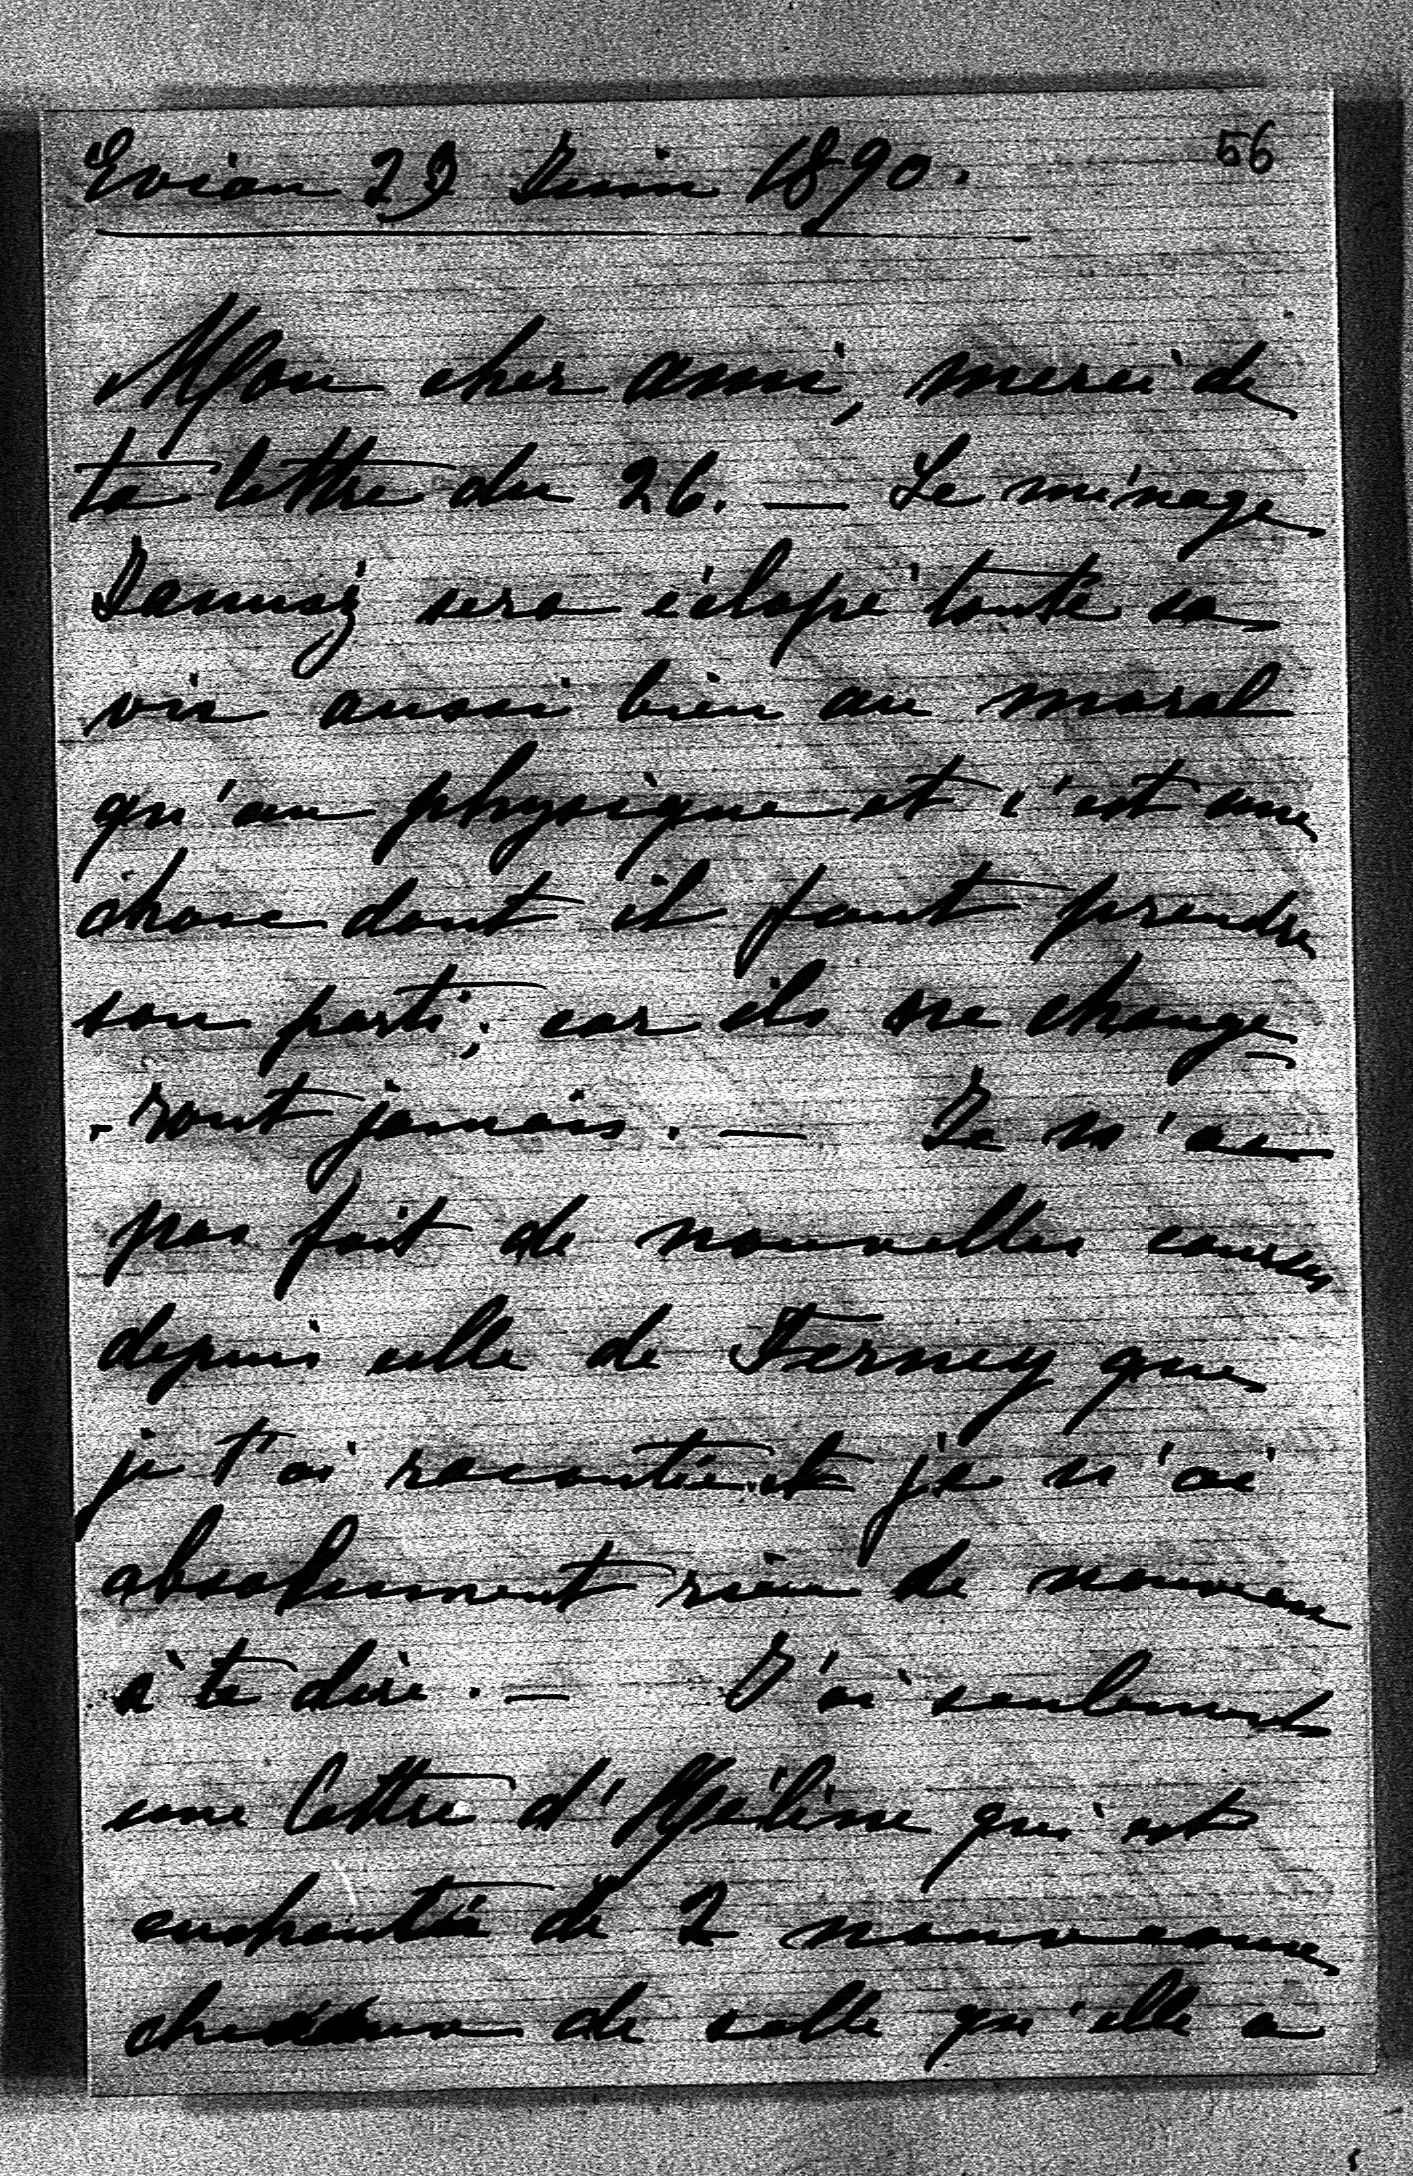 Evian 29 Juin 1890.
56
Mon cher ami, merci de
ta lettre du 26. — Le ménage
Janusz sera éclopé toute sa
vie aussi bien au moral
qu'au physique et c'est une
chose dont il faut prendre
son parti; car ils ne change
-ront jamais. — Je n'ai
pas fait de nouvelles courses
depuis celle de Ferney que
je t'ai racontée et je n'ai
absolument rien de nouveau
à te dire. — J'ai seulement
une lettre d'Hélène qui est
enchantée de 2 nouveaux
chevaux de selle qu'elle a